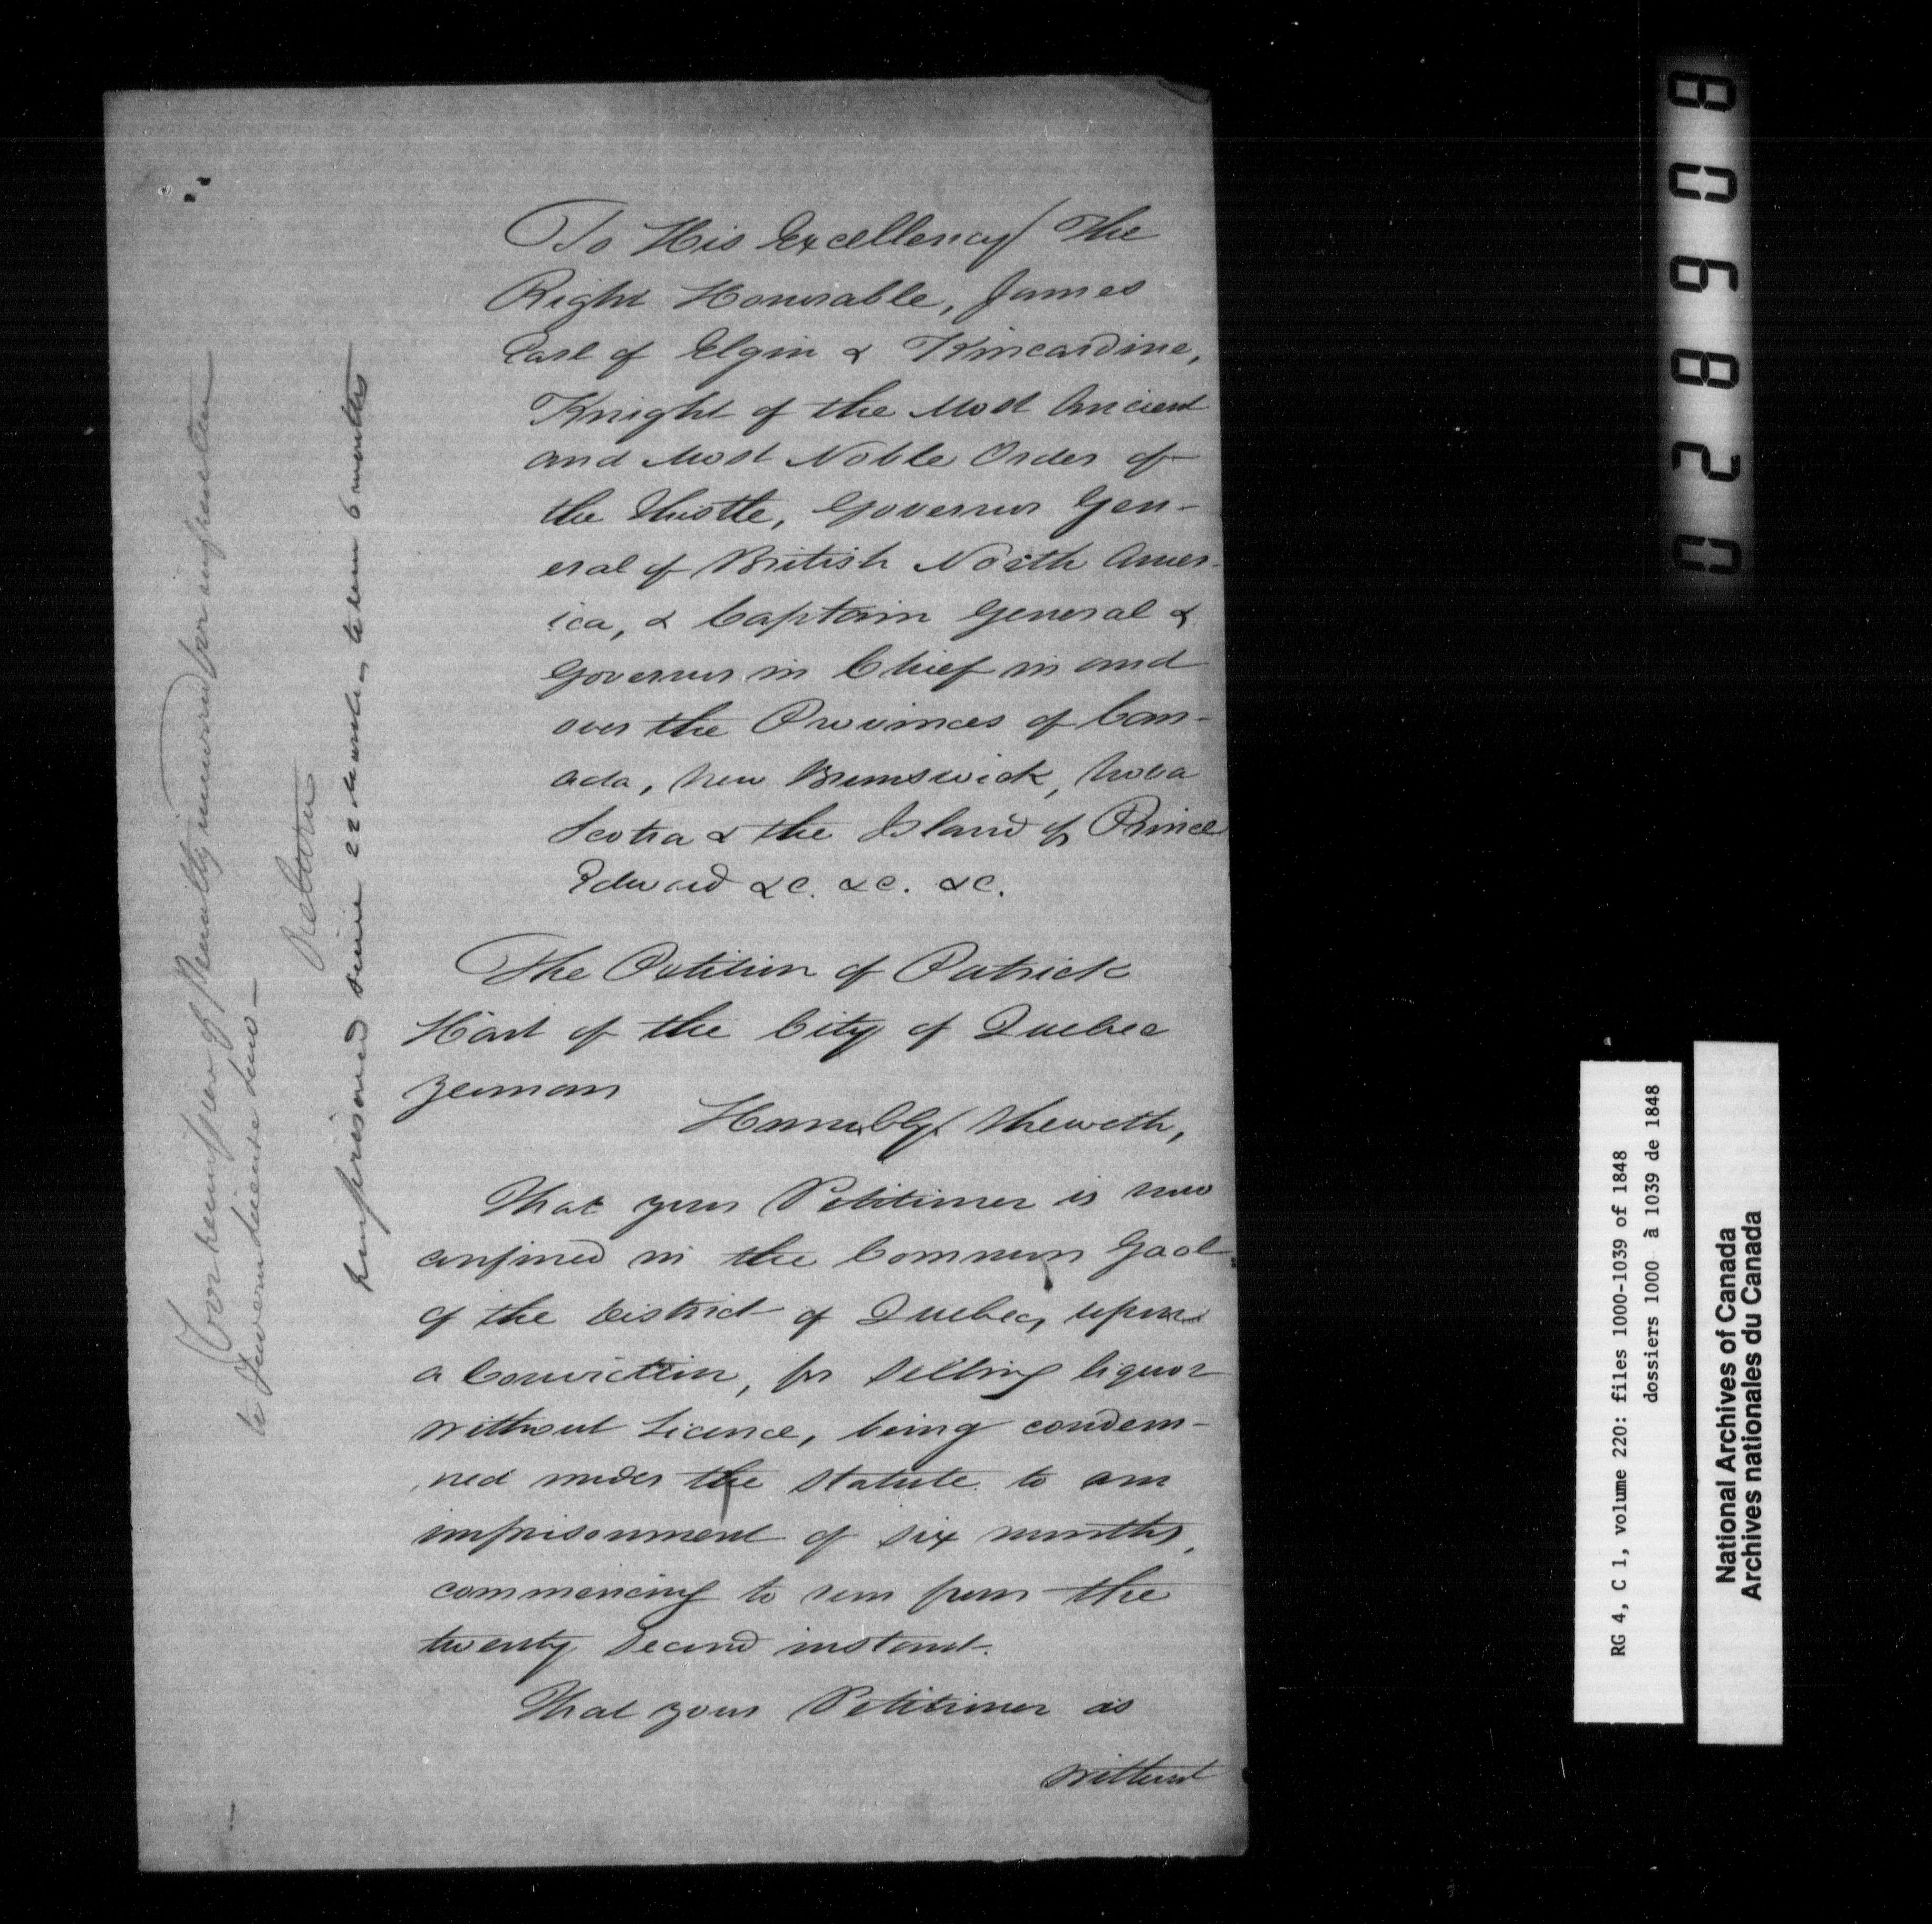 To His Excellency The
Right Honorable, James
Earl of Elgin & Kincardine,
Knight of the Most Ancient
and Most Noble Order of
the Thistle, Governor Gen-
eral of British North Amer-
ica, & Captain General &
Governor in Chief in and
over the Provinces of Can-
ada, New Brunswick, Nova
Scotia & the Island of Prince
Edward &c. &c. &c.
The Petition of Patrick
Hart of the City of Quebec
yeoman
Humbly Sheweth,
That your Petitioner is now
confined in the Common Gaol
of the District of Quebec, upon
a Conviction, for selling liquor
without Licence, being condem-
ned under the Statute to an
imprisonment of six months,
commencing to run from the
twenty second instant.
That your Petitioner is
without
For remission of Penalty incurred for
Return
imprisoned since 22 March, term 6 months
028908
RG 4, C 1, volume 220: files 1000-1039 of 1848
dossiers 1000 à 1039 de 1848
National Archives of Canada
Archives nationales du Canada